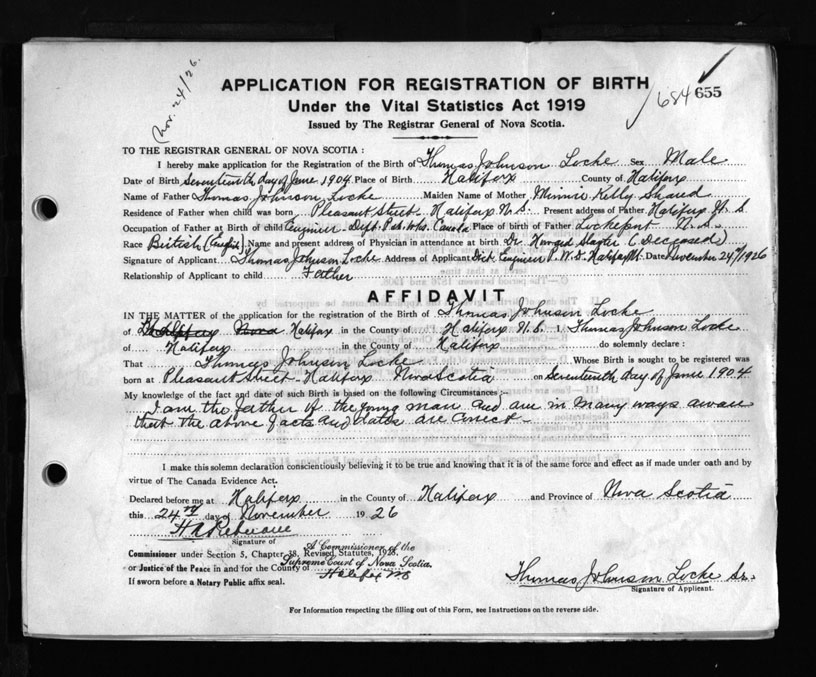 Nov. 24/26.
APPLICATION FOR REGISTRATION OF BIRTH
684 655
Under the Vital Statistics Act 1919
Issued by The Registrar General of Nova Scotia.
TO THE REGISTRAR GENERAL OF NOVA SCOTIA :
I hereby make application for the Registration of the Birth of Thomas Johnson Locke Sex Male
Date of Birth Seventeenth day of June 1904 Place of Birth Halifax County of Halifax
Name of Father Thomas Johnson Locke Maiden Name of Mother Minnie Kelly
Residence of Father when child was born Pleasant Street Halifax N.S. Present address of Father Halifax N.S
Occupation of Father at Birth of child Engineer - Dept. Pub. Wks. Canada Place of Birth of Father Lockeport N.S.
Race British (English) Name and present address of Physician in attendance at birth Dr Howard (Deceased)
Signature of Applicant Thomas Johnson Locke Address of Applicant Dist Engineer P.W.D. Halifax Date November 24th/1926
Relationship of Applicant to child Father
AFFIDAVIT
IN THE MATTER of the application for the registration of the Birth of Thomas Johnson Locke
of Nova Halifax in the County of Halifax N.S. I, Thomas Johnson Locke
of Halifax in the County of Halifax do solemnly declare :
That Thomas Johnson Locke Whose Birth is sought to be registered was
born at Pleasant Street - Halifax Nova Scotia on Seventeenth day of June 1904
My knowledge of the fact and date of such Birth is based on the following Circumstances ;-
I am the father of the young man and am in many ways aware
that the above facts and dates are correct -
I make this solemn declaration conscientiously believing it to be true and knowing that it is of the same force and effect as if made under oath and by
virtue of The Canada Evidence Act.
Declared before me at Halifax in the County of Halifax and Province of Nova Scotia
this 24th day of November 1926
Signature of
Commissioner under Section 5, Chapter 38, Revised Statutes, 1923.
A Commissioner of the
or Justice of the Peace in and for the County of Supreme Court of Nova Scotia.
Halifax NS
If sworn before a Notary Public affix seal.
Thomas Johnson Locke Sr.
Signature of Applicant.
For Information respecting the filling out of this Form, see Instructions on the reverse side.